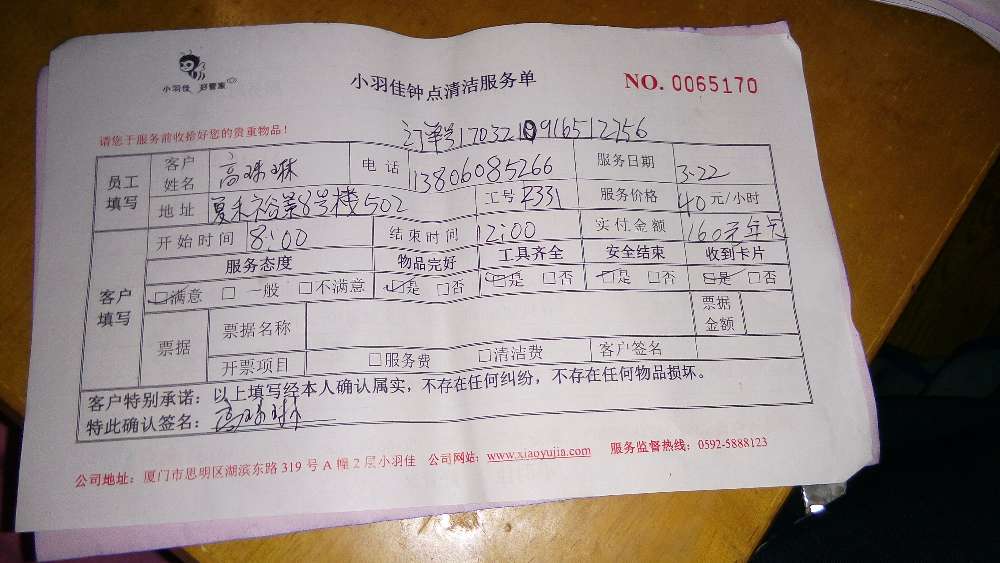 小羽佳 好管家
小羽佳钟点清洁服务单
NO. 0065170
请您于服务前收拾好您的贵重物品!
订单号170321 0916512756
员工填写 客户姓名 高珠琳 电话 13806085266 服务日期 3.22
地址 8号楼502 工号 2331 服务价格 40元/小时
客户填写 开始时间 8:00 结束时间 12:00 实付金额 160元
服务态度 物品完好 工具齐全 安全结束 收到卡片
☑满意 □一般 □不满意 ☑是 □否 ☑是 □否 ☑是 □否 ☑是 □否
票据 票据名称 票据金额
开票项目 □服务费 □清洁费 客户签名
客户特别承诺:以上填写经本人确认属实,不存在任何纠纷,不存在任何物品损坏。
特此确认签名:高珠琳
公司地址:厦门市思明区湖滨东路 319 号 A 幢 2 层小羽佳 公司网站:www.xiaoyujia.com 服务监督热线:0592-5888123